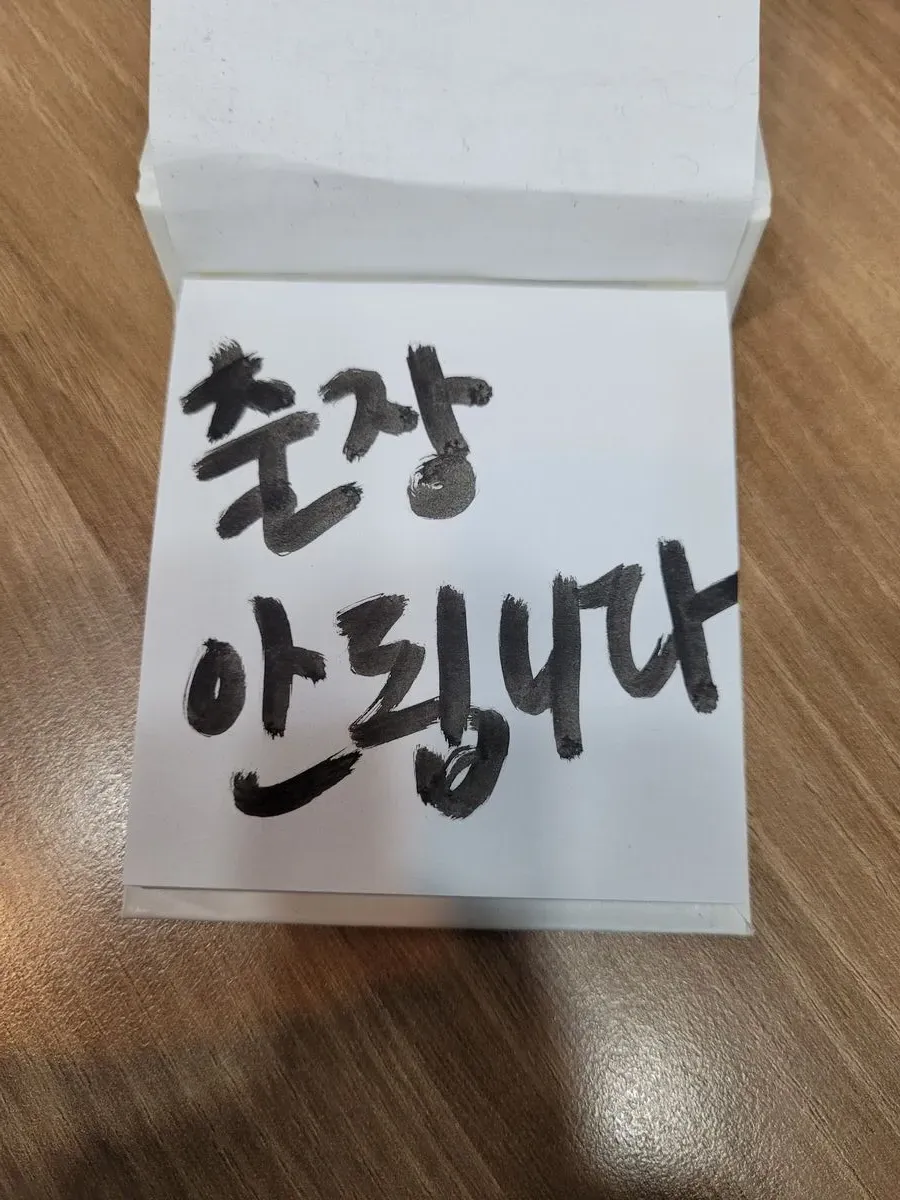 춘장
안됩니다